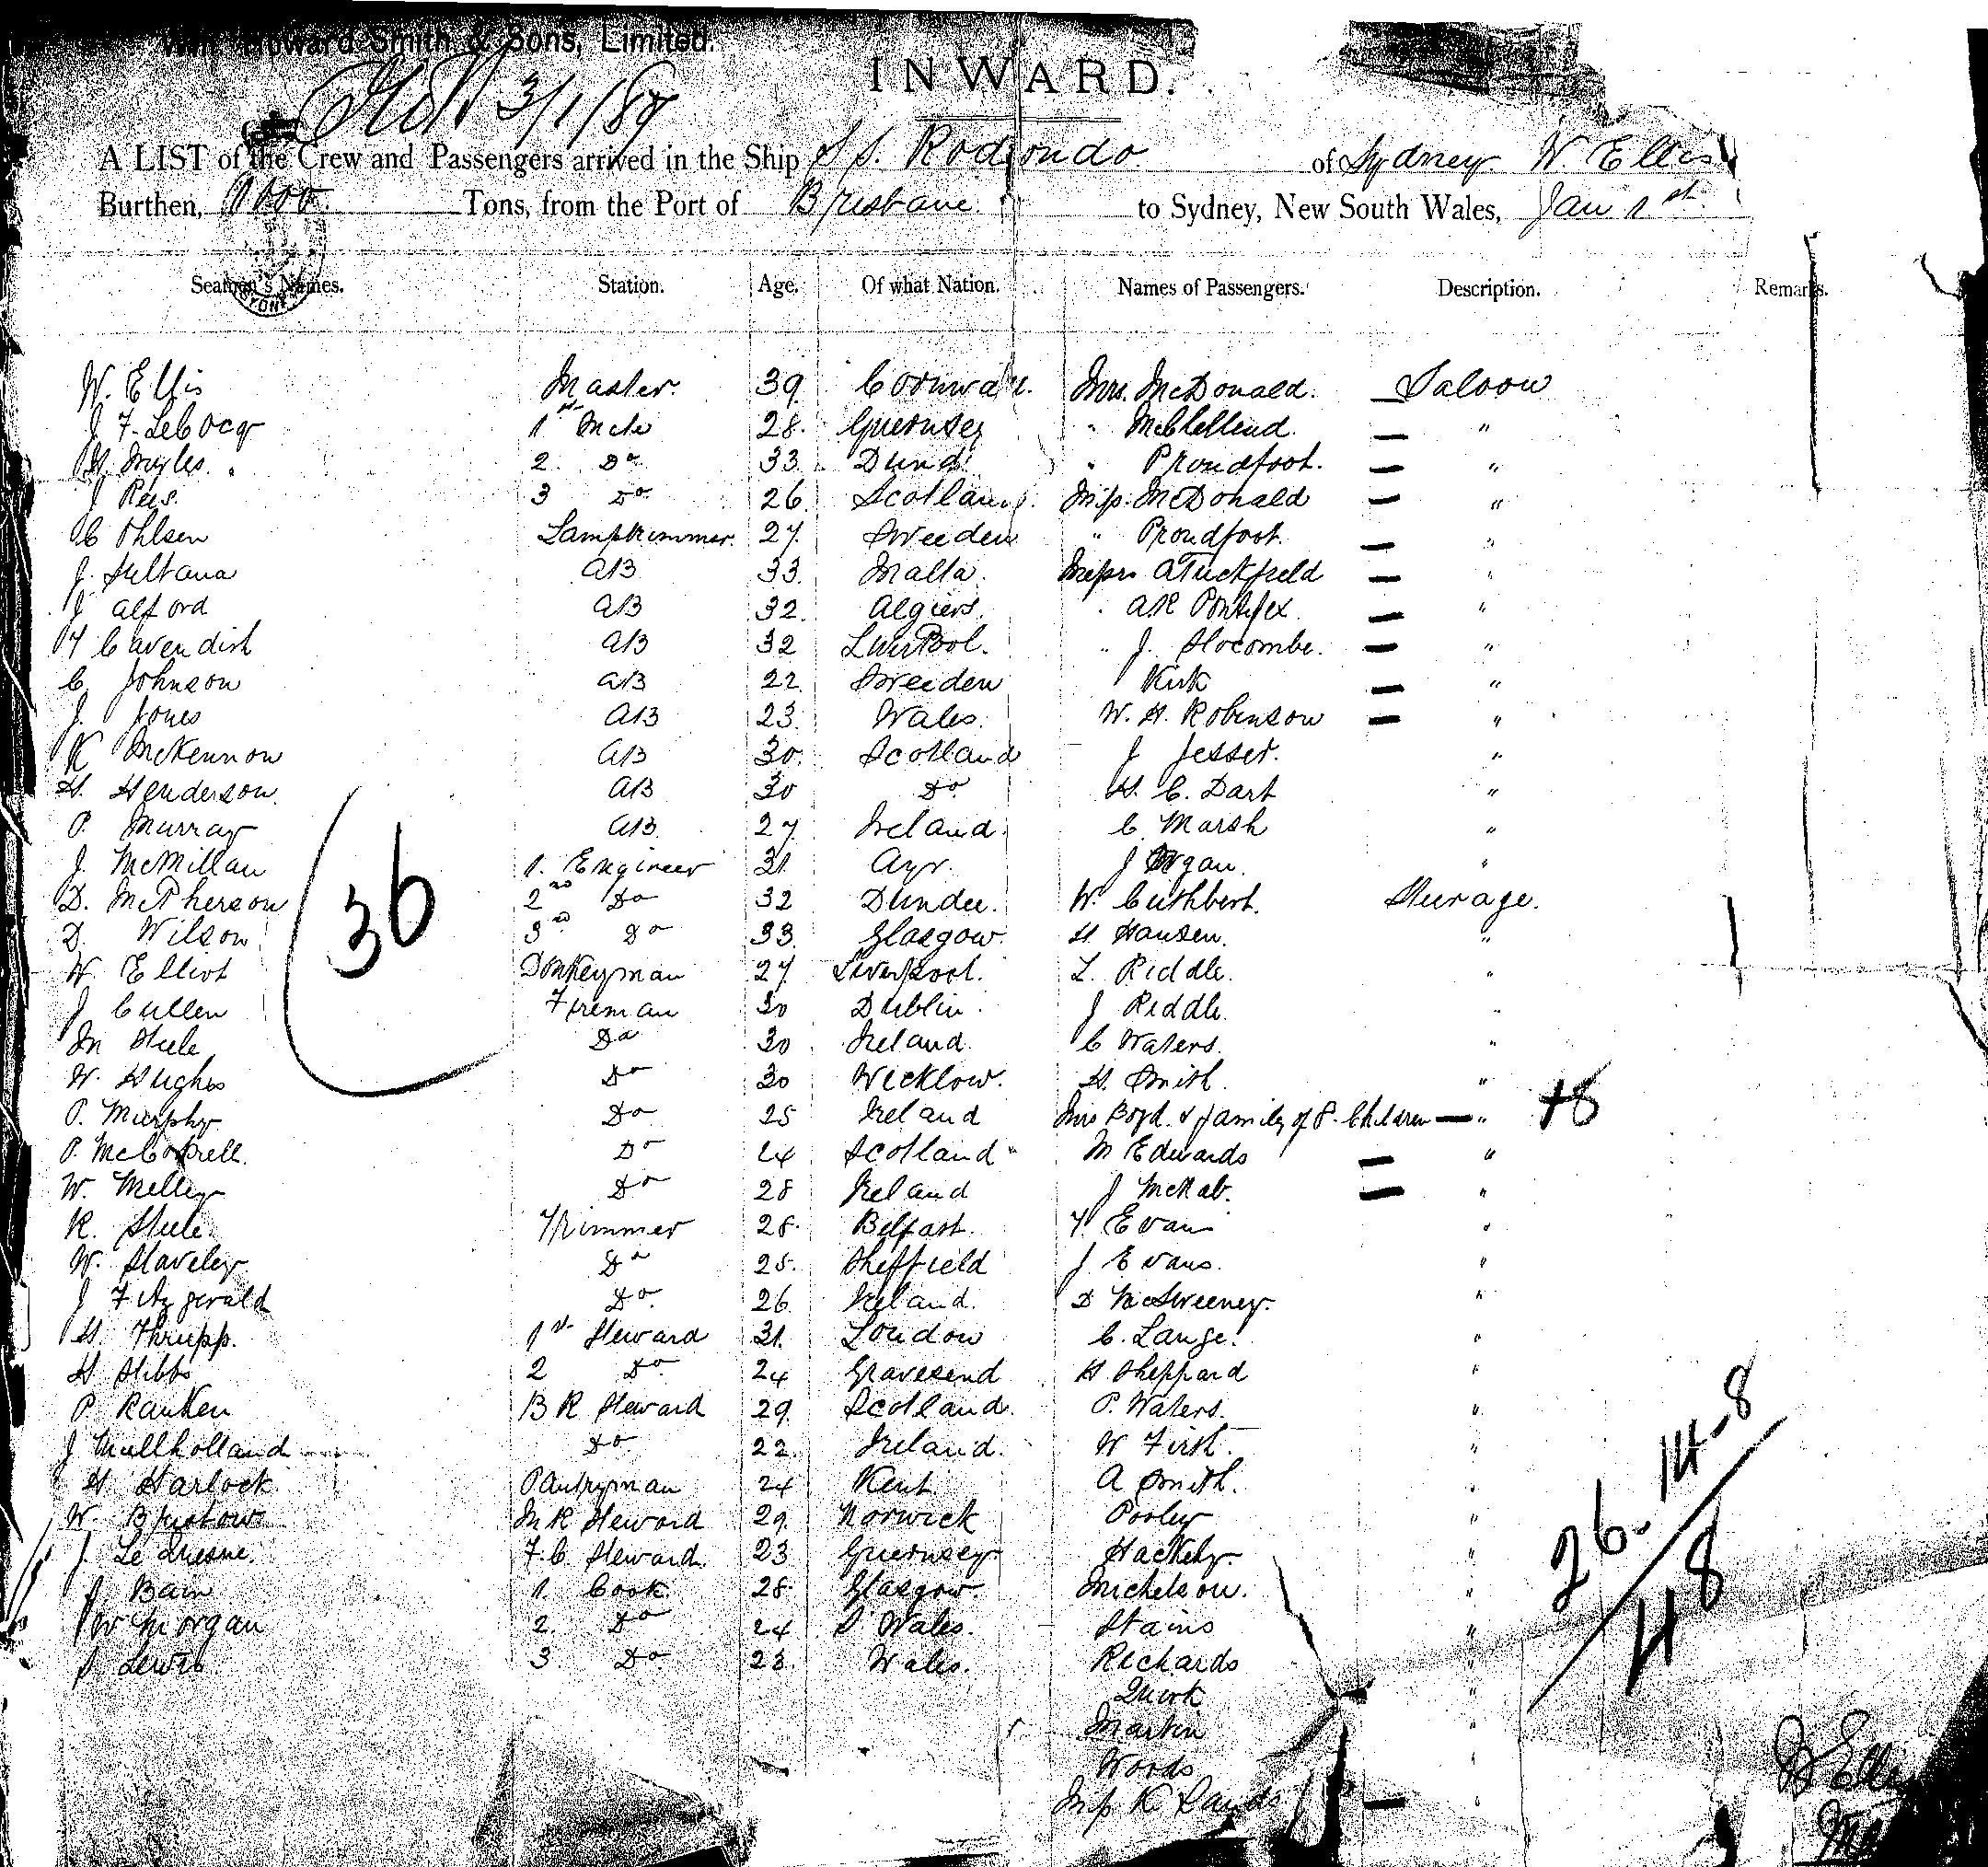 Wm. Howard Smith & Sons, Limited.
INWARD.
3/1/89
A LIST of the Crew and Passengers arrived in the Ship S.S. Rodondo of Sydney W Ellis
Burthen, Tons, from the Port of Brisbane to Sydney, New South Wales, Jan 1st
Seamen's Names. Station. Age. Of what Nation. Names of Passengers. Description. Remarks.
W. Ellis Master. 39 Cornwall. Mrs. McDonald. — Saloon
J F. LeCocq 1st Mate 28. Guernsey " McClelland. — "
H. Myles. 2. Do 33. Dundee " Proudfoot. — "
J Rees. 3 Do 26. Scotland. Miss. McDonald — "
C Ohlsen Lamptrimmer. 27. Sweeden " Proudfoot. — "
J. Sultana AB 33. Malta. Messrs A Tuckfield — "
J Alford AB 32. Algiers. " AR Pontifex — "
H Cavendish AB 32 LiverPool. " J. Slocombe. — "
C. Johnson AB 22. Sweeden Kirk — "
J. Jones AB 23. Wales. W. H. Robinson — "
K McKennon AB 30. Scotland J Jesser. "
H. Henderson. AB 30 Do H. C. Dart "
P. Murray AB 27. Ireland. C. Marsh "
J. McMillan 1. Engineer 31. Ayr. J Organ. "
D. McPherson 2nd Do 32 Dundee. W. Cuthbert. Steerage.
D. Wilson 3rd Do 33. Glasgow. H. Hansen. "
W. Elliot Donkeyman 27. Liverpool. L. Riddle. "
J Cullen Fireman 30 Dublin. J Riddle. "
36
M Steele Do 30 Ireland. C Waters. "
W. Hughes Do 30 Wicklow. H. Smith. "
P. Murphy Do 25 Ireland Mrs Boyd. & family of 8. Children — " +8
P. Do 24 Scotland M Edwards — "
W. Melley Do 28 Ireland J McNab. — "
R. Steele Trimmer 28. Belfast. T. Evans "
W. Staveley Do 25. Sheffield J Evans. "
J Fitzgerald Do 26. Ireland. D McSweeney. "
H. Thrupp. 1st Steward 31. London C. Lange. "
H Stibbs 2 Do 24 Gravesend H Sheppard "
P. Ranken B R Steward 29. Scotland. P. Waters. "
J Mullholland Do 22. Ireland. W Firth. "
H Harlock Pantryman 24 Kent A Smith. "
W. Bristow M R Steward 29. Norwick Pooley "
J. Le Quesne. F. C. Steward. 23 Guernsey "
J Bain 1. Cook 28. Glasgow. Michelson. "
W Morgan 2. Do 24 S. Wales. Stains "
Lewis 3 Do 23. Wales. Richards "
Quirk "
Martin "
Woods "
Miss K Sands — "
26. 14-8
48
W Ellis